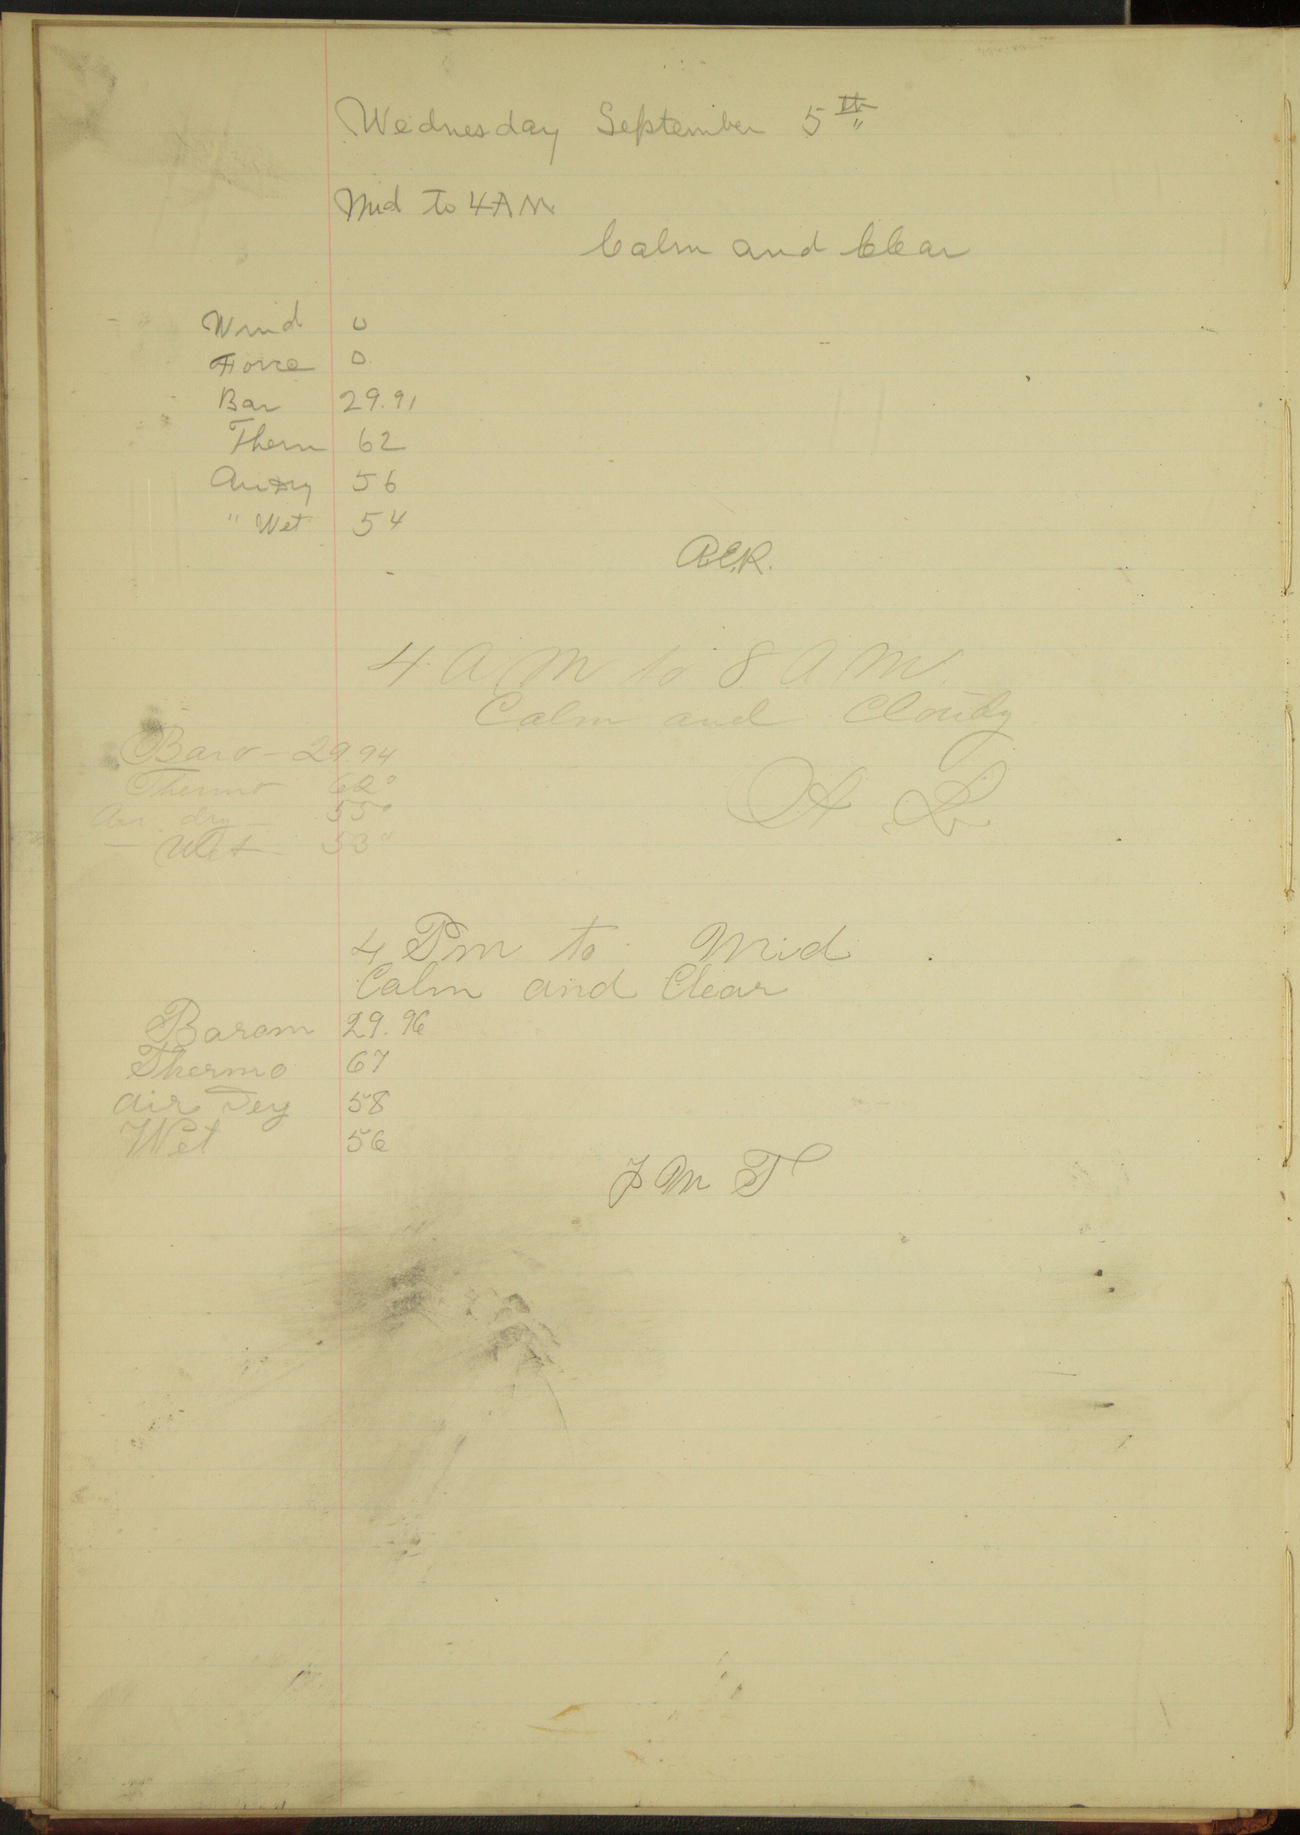 Wednesday September 5th
Mid to 4 AM
Calm and Clear
Wind 0
Force 0
Bar 29.91
Therm 62
Air Dry 56
" Wet 54
R.E.R.
4 AM to 8 AM.
Calm and Cloudy
Baro - 29.94
Thermo 62°
Air dry - 55°
- Wet - 53°
A. L.
4 Pm to Mid
Calm and Clear
Barom 29.96
Thermo 67
Air Dry 58
Wet 56
J M T